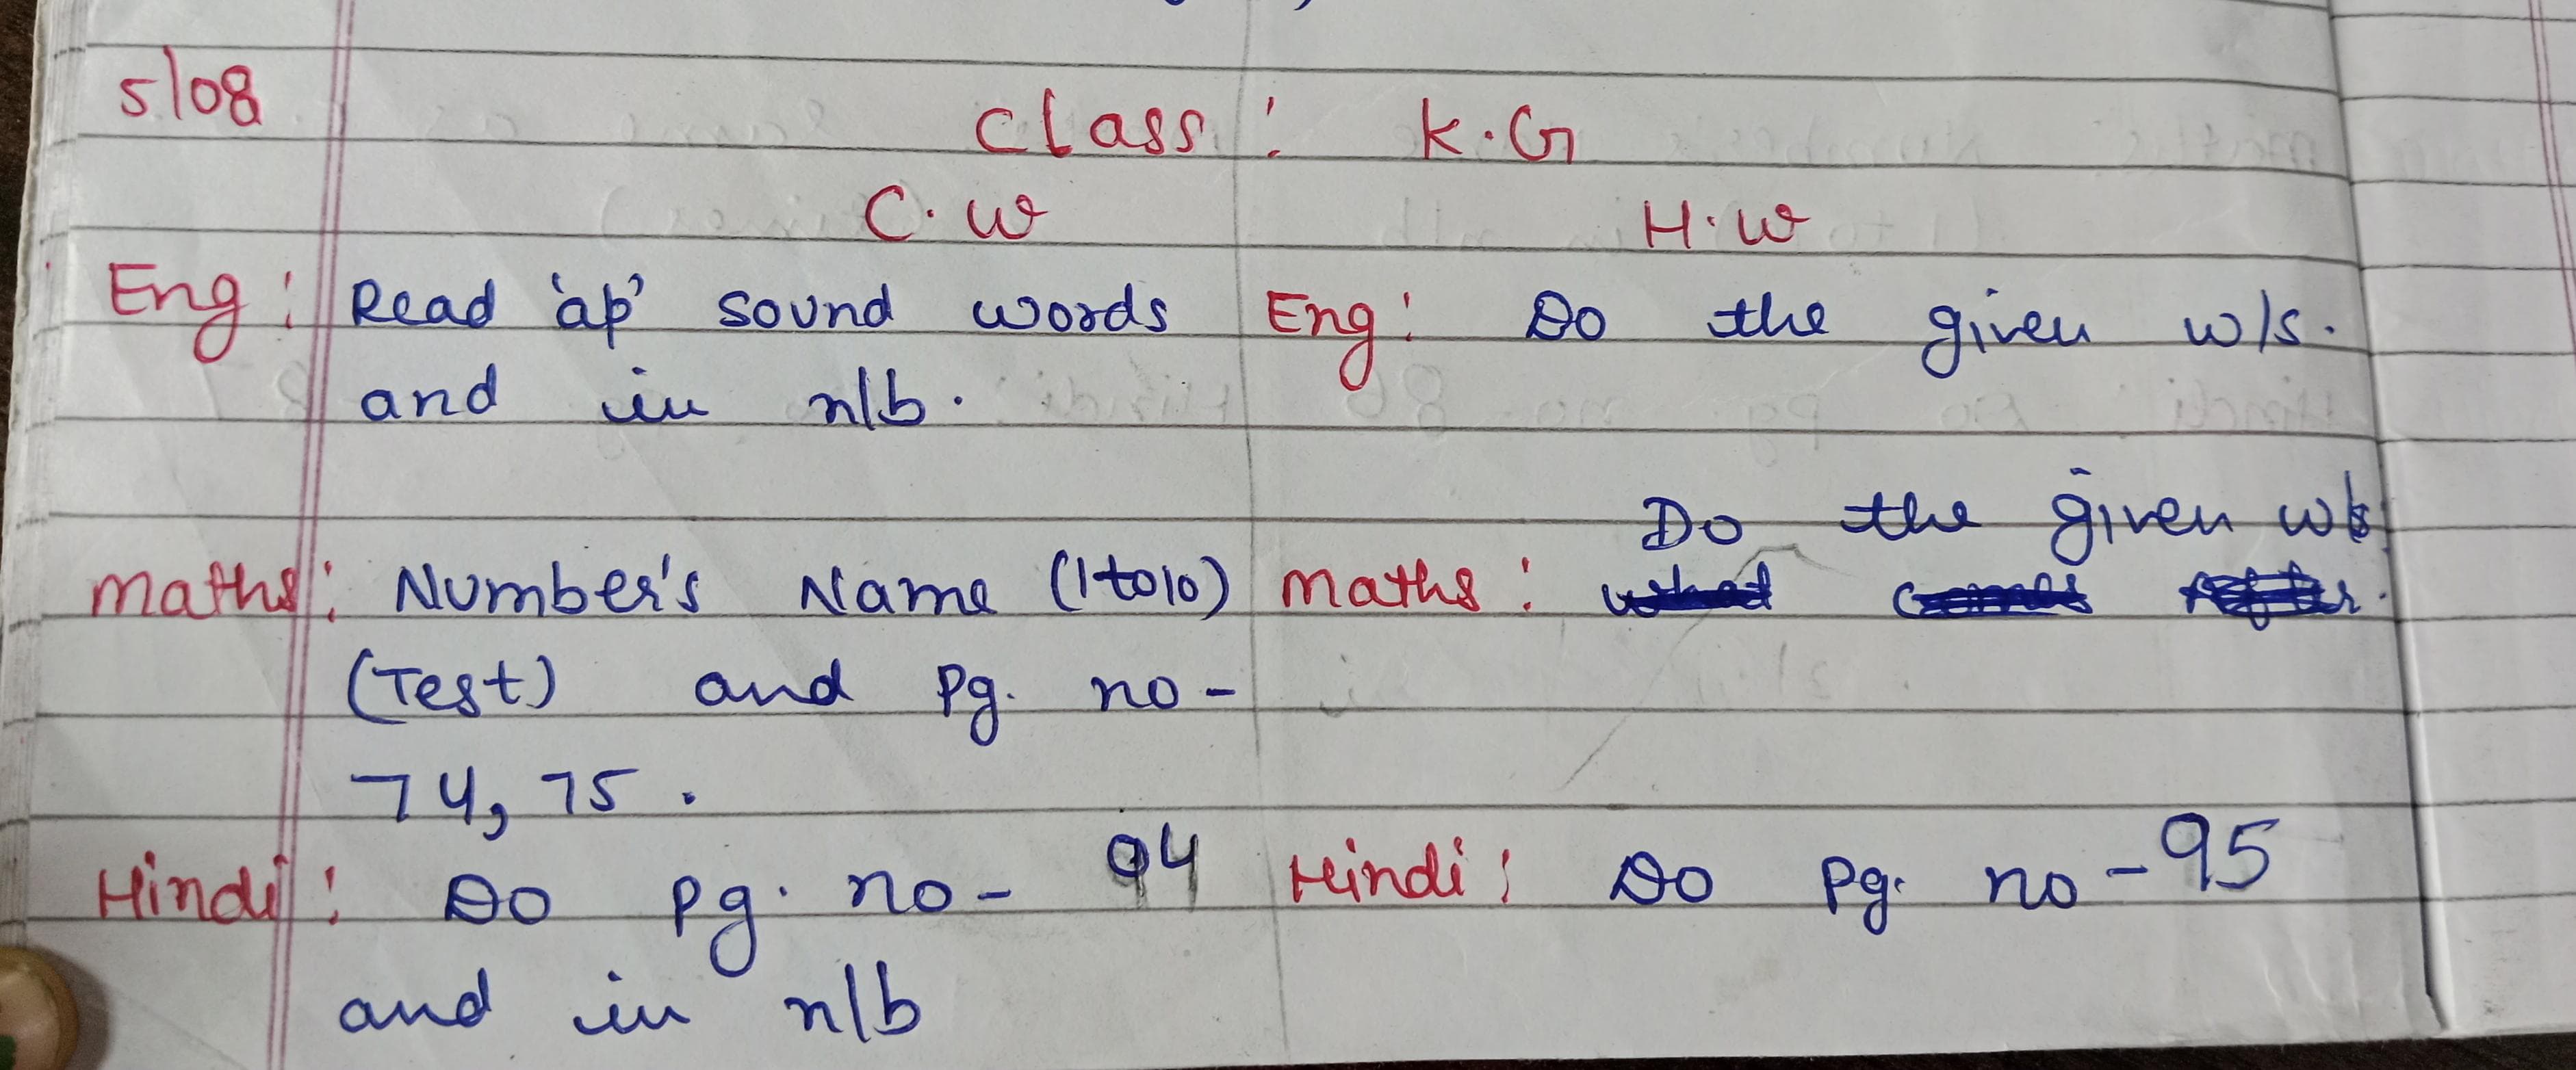 5/08
Class : K.G
C.W H.W
Eng : Read 'ap' sound words Eng : Do the given w/s.
and in n/b.
Do the given w/s
Maths : Number's Name (1 to 10) Maths :
(Test) and Pg. no -
74, 75.
Hindi : Do Pg. no - 94 Hindi : Do Pg. no - 95
and in n/b